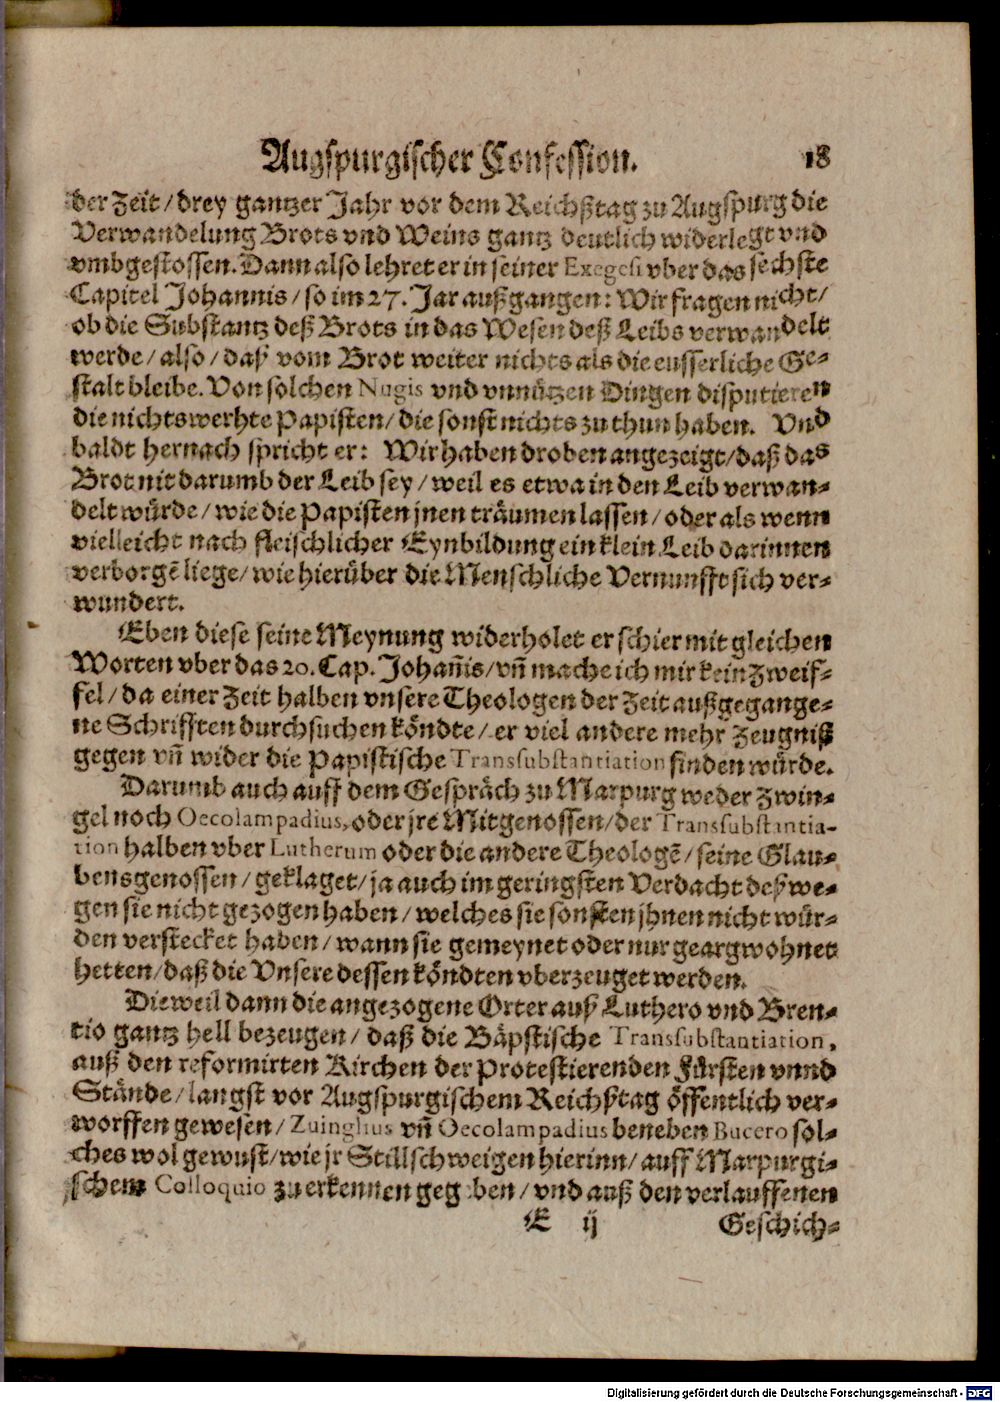 Augspurgischer Confession. 18
der Zeit / drey gantzer Jahr vor dem Reichßtag zu Augspurg die
Verwandelung Brots vnd Weins gantz deutlich widerlegt vnd
vmbgestossen. Dann also lehret er in seiner Exegesi vber das sechste
Capitel Johannis / so im 27. Jar außgangen: Wir fragen nicht /
ob die Substantz deß Brots in das Wesen deß Leibs verwandelt
werde / also / daß vom Brot weiter nichts als die eusserliche Ge-
stalt bleibe. Von solchen Nugis vnd vnnützen Dingen disputieren
die nichtswerhte Papisten / die sonst nichts zu thun haben. Vnd
baldt hernach spricht er: Wir haben droben angezeigt / daß das
Brot nit darumb der Leib sey / weil es etwa in den Leib verwan-
delt würde / wie die Papisten jnen träumen lassen / oder als wenn
vielleicht nach fleischlicher Eynbildung ein klein Leib darinnen
verborgē liege / wie hierüber die Menschliche Vernunfft sich ver-
wundert.
Eben diese seine Meynung widerholet er schier mit gleichen
Worten vber das 20. Cap. Johañis / vñ mache ich mir kein Zweif-
fel / da einer Zeit halben vnsere Theologen der Zeit außgegange-
ne Schrifften durchsuchen köndte / er viel andere mehr Zeugniß
gegen vñ wider die Papistische Transsubstantiation finden würde.
Darumb auch auff dem Gespräch zu Marpurg weder Zwin-
gel noch Oecolampadius, oder jre Mitgenossen / der Transsubstantia-
tion halben vber Lutherum oder die andere Theologē / seine Glau-
bensgenossen / geklaget / ja auch im geringsten Verdacht deß we-
gen sie nicht gezogen haben / welches sie sonsten jhnen nicht wür-
den verstecket haben / wann sie gemeynet oder nur geargwohnet
hetten / daß die Vnsere dessen köndten vberzeuget werden.
Dieweil dann die angezogene Orter auß Luthero vnd Bren-
tio gantz hell bezeugen / daß die Bäpstische Transsubstantiation,
auß den reformirten Kirchen der Protestierenden Fürsten vnnd
Stände / langst vor Augspurgischem Reichßtag öffentlich ver-
worffen gewesen / Zuinglius vñ Oecolampadius beneben Bucero sol-
ches wol gewust / wie jr Stillschweigen hierinn / auff Marpurgi-
schem Colloquio zu erkennen geg ben / vnd auß den verlauffenen
E ij Geschich-
Digitalisierung gefördert durch die Deutsche Forschungsgemeinschaft - DFG